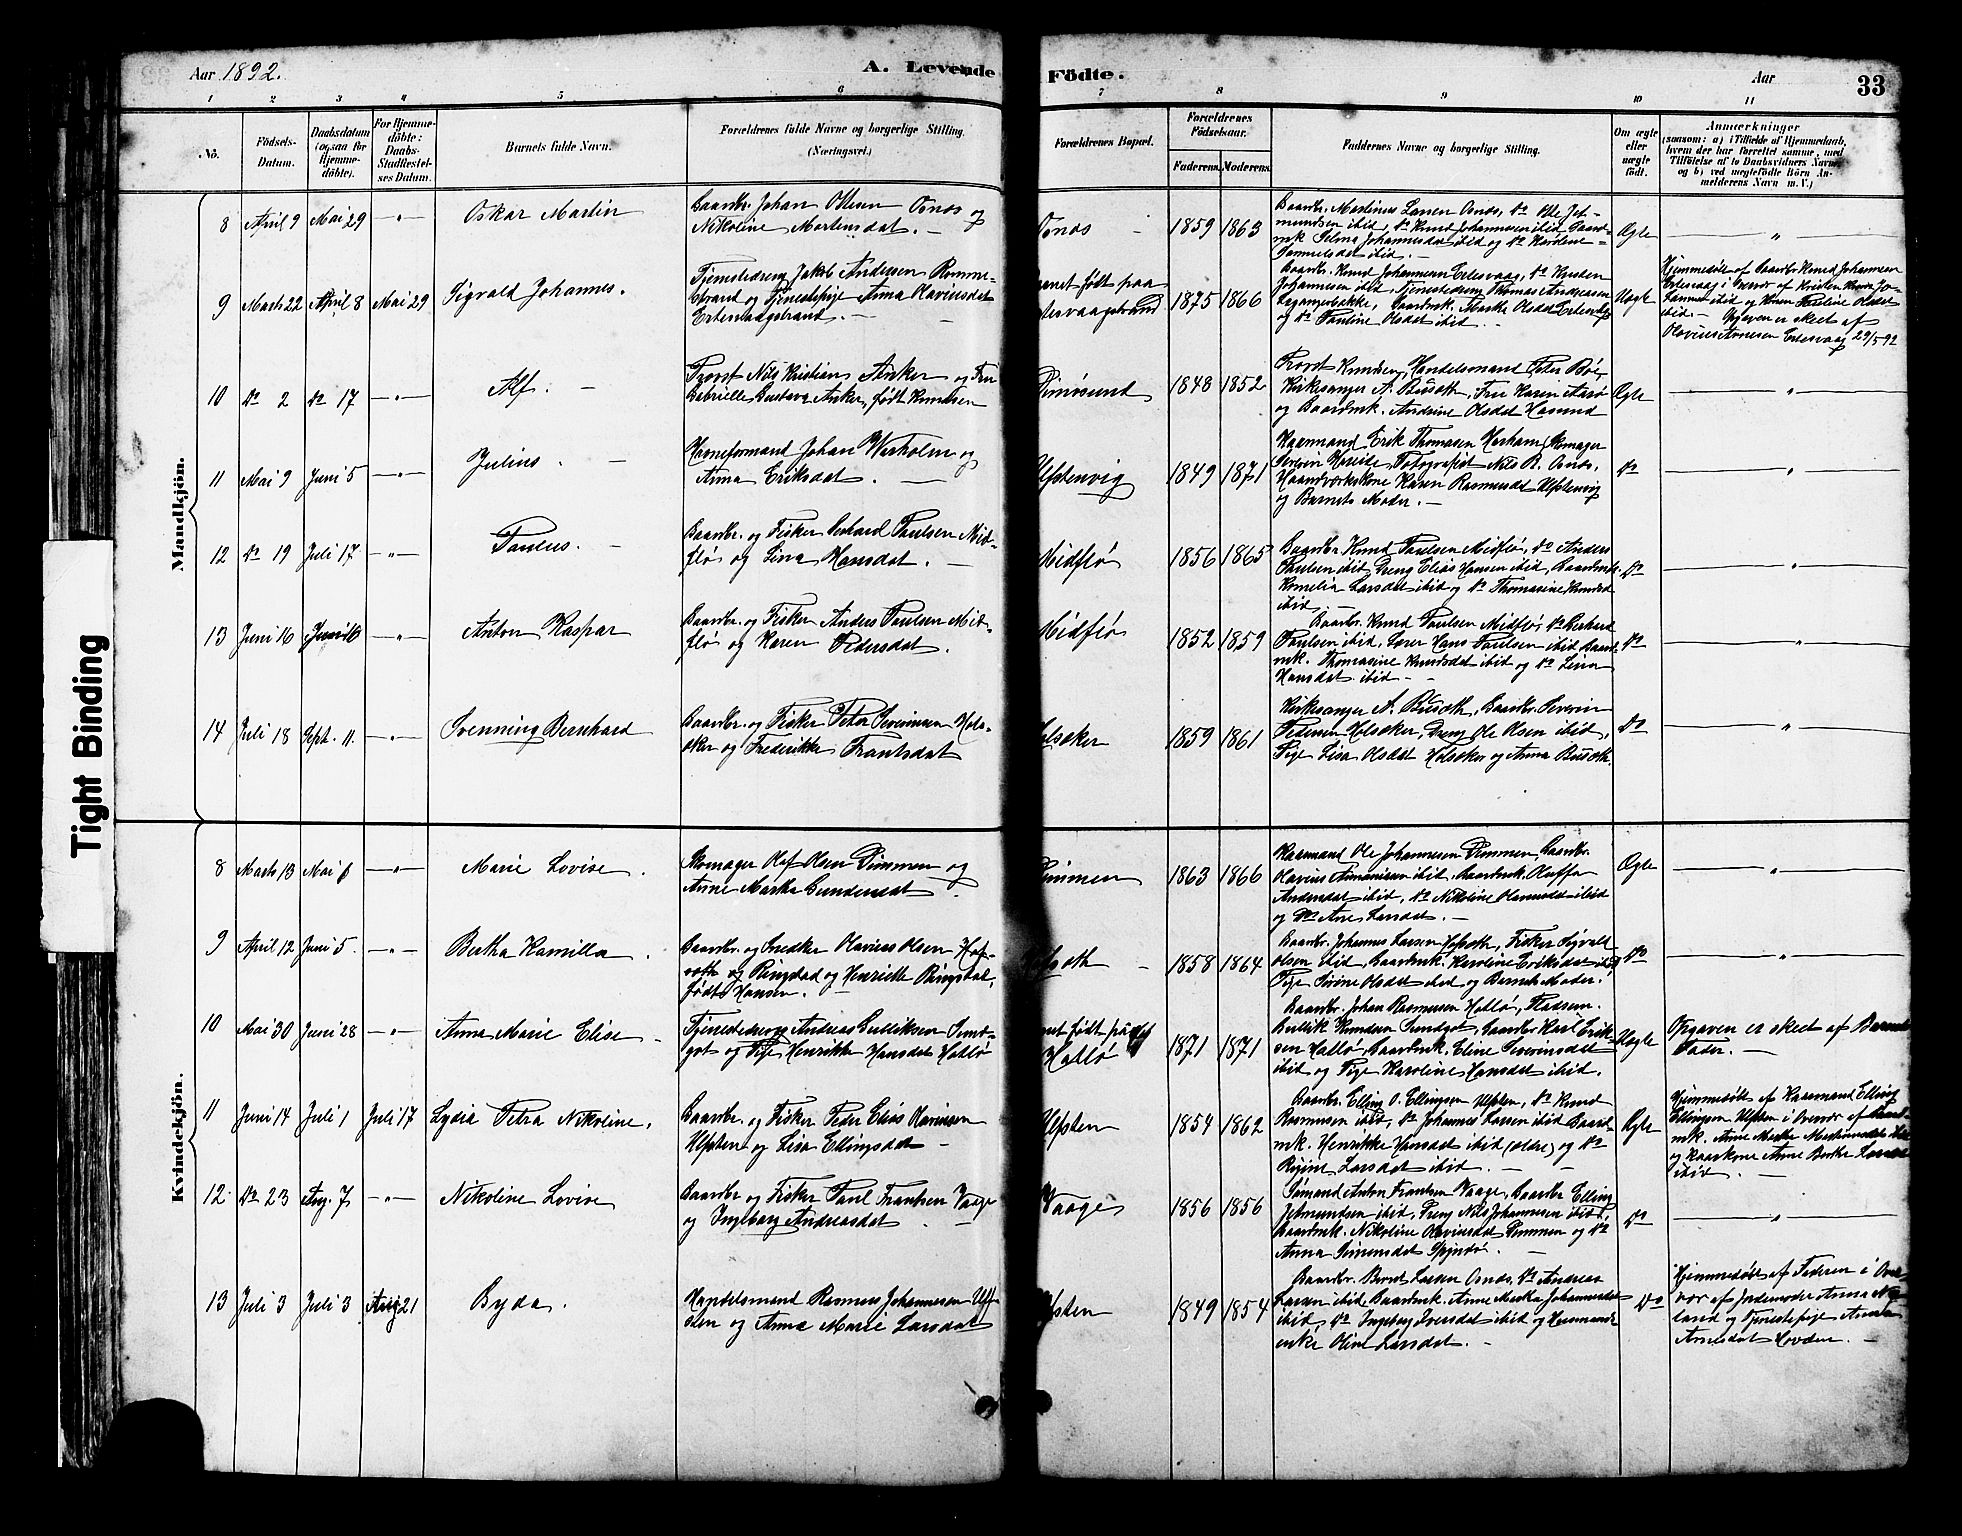 Aar 1892.
A. Levende Födte.
Aar
33
1 2 3 4 5 6 7 8 9 10 11
No.
Födsels-
Datum.
Daabsdatum
(ogsaa for
Hjemme-
döbte).
For Hjemme-
döbte:
Daabs-
Stadfæstel-
ses Datum.
Barnets fulde Navn.
Forældrenes fulde Navne og borgerlige Stilling.
(Næringsvei.)
Forældrenes Bopæl.
Forældrenes
Födselsaar.
Faderens. Moderens.
Faddernes Navne og borgerlige Stilling.
Om ægte
eller
uægte
födt.
Anmærkninger
(saasom: a) i Tilfælde af Hjemmedaab,
hvem der har forrettet samme, med
Tilföielse af to Daabsvidners Navne,
og b) ved uægtefödte Börn An-
melderens Navn m. V.)
Mandkjön.
8 April 9 Mai 29 -"- Oskar Martin
Gaardbr. Johan Ottesen Osnæs og
Nikoline Martensdat. -
Osnæs - 1859 1863
Gaardbr. Martinus Larsen Osnæs, do Ole Jet-
mundsen ibid, do Knud Johannessen ibid, Gaard-
mk Selma Johannesdat ibid og do Karoline
Samuelsdat ibid.
Ægte "
9 Marts 22 April 8 Mai 29 Sigvald Johannes.
Tjenestedreng Jakob Andersen Romme-
strand og Tjenestepige Anna Olavinsdat
Ertesvaagstrand. -
Barnet født paa
Ertesvaagstrand 1875 1866
Gaardbr. Knud Johannessen Ertesvaag, do Kristen
Johannessen ibid, Tjenestedreng Thomas Andreassen
Leganger bakke, Gaardmk. Marthe Olsdat Ertesvåg
og do Pauline Olsdat ibid. -
Uægte
Hjemmedøbt af Gaardbr Knud Johannessen
Ertesvaag i Overvær af Kristen Jo-
hannessen ibid og Pauline Olsdat
ibid. - Opgaven er skeet af
Olavius Arnesen Ertesvaag 29/5 92
10 do 2 do 17 -"- Alf. -
Provst Nils Kristian Anker og Fru
Gabrielle Gustava Anker, født Knudsen
Dimøsund 1848 1852
Provst Kunberg, Handelsmand Peter Bøe
Kirkesanger A. Busæth, Fru Karen Aarø
og Gaardmk. Andrine Olsdat Hasund
Ægte "
11 Mai 9 Juni 5 -"- Julius. -
Havneformand Johan Wirholm og
Anna Eriksdat. -
Ulfstenvig 1849 1871
Kaarmand Erik Thomassen Herham, Skomager
Severin Hareide, Fotografist Nils R. Osnæs,
Haandværkskone Karen Rasmusdat Ulfstenvig
og Barnets Moder. -
do "
12 do 19 Juli 17 -"- Paulus. -
Gaardbr. og Fisker Gerhard Paulsen Mid-
flø og Lina Hansdat.
Midflø 1856 1865
Gaardbr Knud Paulsen Midflø, do Anders
Paulsen ibid, Dreng Elias Hansen ibid, Gaardmk.
Kornelia Larsdat ibid og do Thomasine Knudsd
ibid. -
do "
13 Juni 16 Juni 16 -"- Anton Kaspar
Gaardbr. og Fisker Anders Paulsen Mid-
flø og Karen Pedersdat.
Midflø 1852 1859
Gaardbr. Knud Paulsen Midflø, do Gerhard
Paulsen ibid, Lærer Hans Paulsen ibid Gaard-
mk. Thomasine Knudsdat ibid og do Lina
Hansdat ibid. -
do "
14 Juli 18 Sept. 11. -"- Svenning Bernhard
Gaardbr. og Fisker Peter Severinsen Hols-
æker og Frederikke Frantsdat
Holsæker 1859 1861
Kirkesanger A. Busæth, Gaardbr. Severin
Pedersen Holsæker, Dreng Ole Olsen ibid,
Pige Lisa Olsdat Holsæker og Anna Busæth.
do "
Kvindekjön.
8 Marts 13 Mai 8 -"- Marie Lovise.
Skomager Olaf Olsen Dimmen og
Anne Marthe Gundersdat.
Dimmen 1863 1866
Kaarmand Ole Johannessen Dimmen, Gaardbr.
Olavius Annanisen ibid, Gaardmk. Oluffa
Andersdat ibid, do Nikoline Olavusdat ibid
og do Ane Larsdat. -
Ægte "
9 April 12 Juni 5. -"- Bertha Kamilla.
Gaardbr. og Snedker Olavius Olsen Hof-
sæth og Ringstad og Henriette Ringstad,
født Hansen. -
- 1858 1864
Gaardbr. Johannes Larsen Hofsæth, Fisker Sigvalt
Olsen ibid, Gaardmk. Karoline Eriksdat ibid,
Pige Sirine Olsdat ibid og Barnets Moder.
do "
10 Mai 30 Juni 28 -"- Anna Marie Elise -
Tjenestedreng Andreas Gulliksen Sund-
got og Pige Henrikke Hansdat Hatlø
født på
Hatlø 1871 1871
Gaardbr. Johan Rasmussen Hatlø, Pladsm.
Gullik Knudsen Sundgot, Gaardbr Karl Erik-
sen Hatlø, Gaardmk. Eline Severinsdat
ibid og Pige Karoline Hansdat ibid.
Uægte
Opgaven er skeet af Barnets
Fader. -
11 Juni 14 Juli 1 Juli 17 Lydia Petra Nikoline.
Gaardbr. og Fisker Peder Elias Karinsen
Ulfsten og Lisa Ellingsdat -
Ulfsten 1854 1862
Gaardbr. Elling O. Ellingsen Ulfsten, do Knud
Rasmussen ibid, do Johannes Larsen ibid Gaard-
mk. Henrikke Hansdat ibid (ældre) og do
Regine Larsdat ibid. -
Ægte
Hjemmedøbt af Kaarmand Elling
Ellingsen Ulfsten i Overvær af Gaard-
mk. Anne Marthe Martinusdat ibid
og Kaarkone Anne Berthe Larsdat
ibid. -
12 do 23 Aug. 7 -"- Nikoline Lovise
Gaardbr og Fisker Paul Frantsen Vaage
og Ingeborg Andreasdat. -
Vaage 1856 1856
Sømand Anton Frantsen Vaage, Gaardbr Elling
Jetmundsen ibid, Dreng Nils Johannessen ibid,
Gaardmk. Nikoline Olavinsdat Dimmen og do
Anna Simensdat. -
do "
13 Juli 3 Juli 3 Aug 21 Gyda.
Handelsmand Rasmus Johannessen Ulf-
sten og Anna Marie Larsdat
Ulfsten 1849 1854
Gaardbr. Bernt Larsen Osnæs, do Andreas
Larsen ibid, Gaardmk. Anne Marthe Johannesdat
ibid, do Ingeborg Iversdat ibid og
enke Oline Larsdat. -
do
Hjemmedøbt af Faderen i Over-
vær af Jordemoder Anna
land og Tjenestepige
Arnesdat Hovden. -
Tight Binding